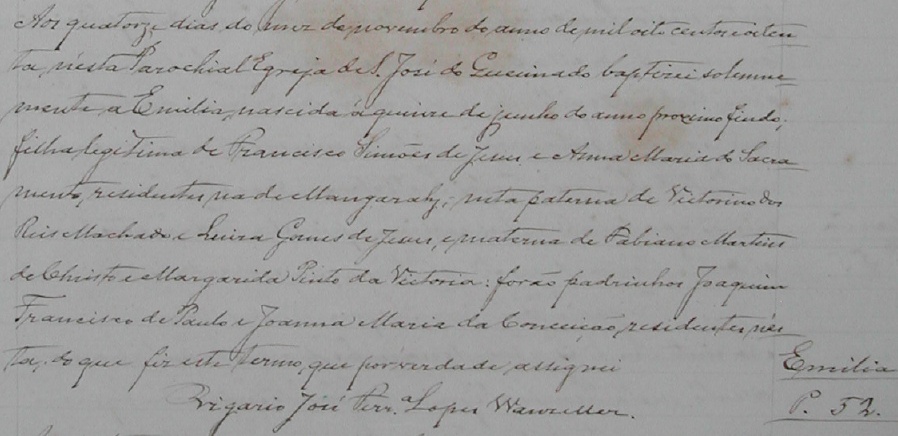 Aos quatorze dias do mez de novembro do anno de mil oito centos e oiten
ta, nesta Parochial Egreja de S. José do Queimado baptizei solemne=
mente a Emilia, nascida á quinze de junho do anno proximo findo;
filha legitima de Francisco Simões de Jesus e Anna Maria do Sacra
mento, residentes na de Mangarahy; neta paterna de Victorino dos
Reis Machado e Luiza Gomes de Jesus, e materna de Fabiano Martins
de Christo e Margarida Pinto da Victoria: forão padrinhos Joaquim
Francisco de Paulo e Joanna Maria da Conceição, residentes nes
ta, do que fiz este termo, que por verdade assignei
Vigario José Ferr.ª Lopes Wanzeller.
Emilia
P. 52.